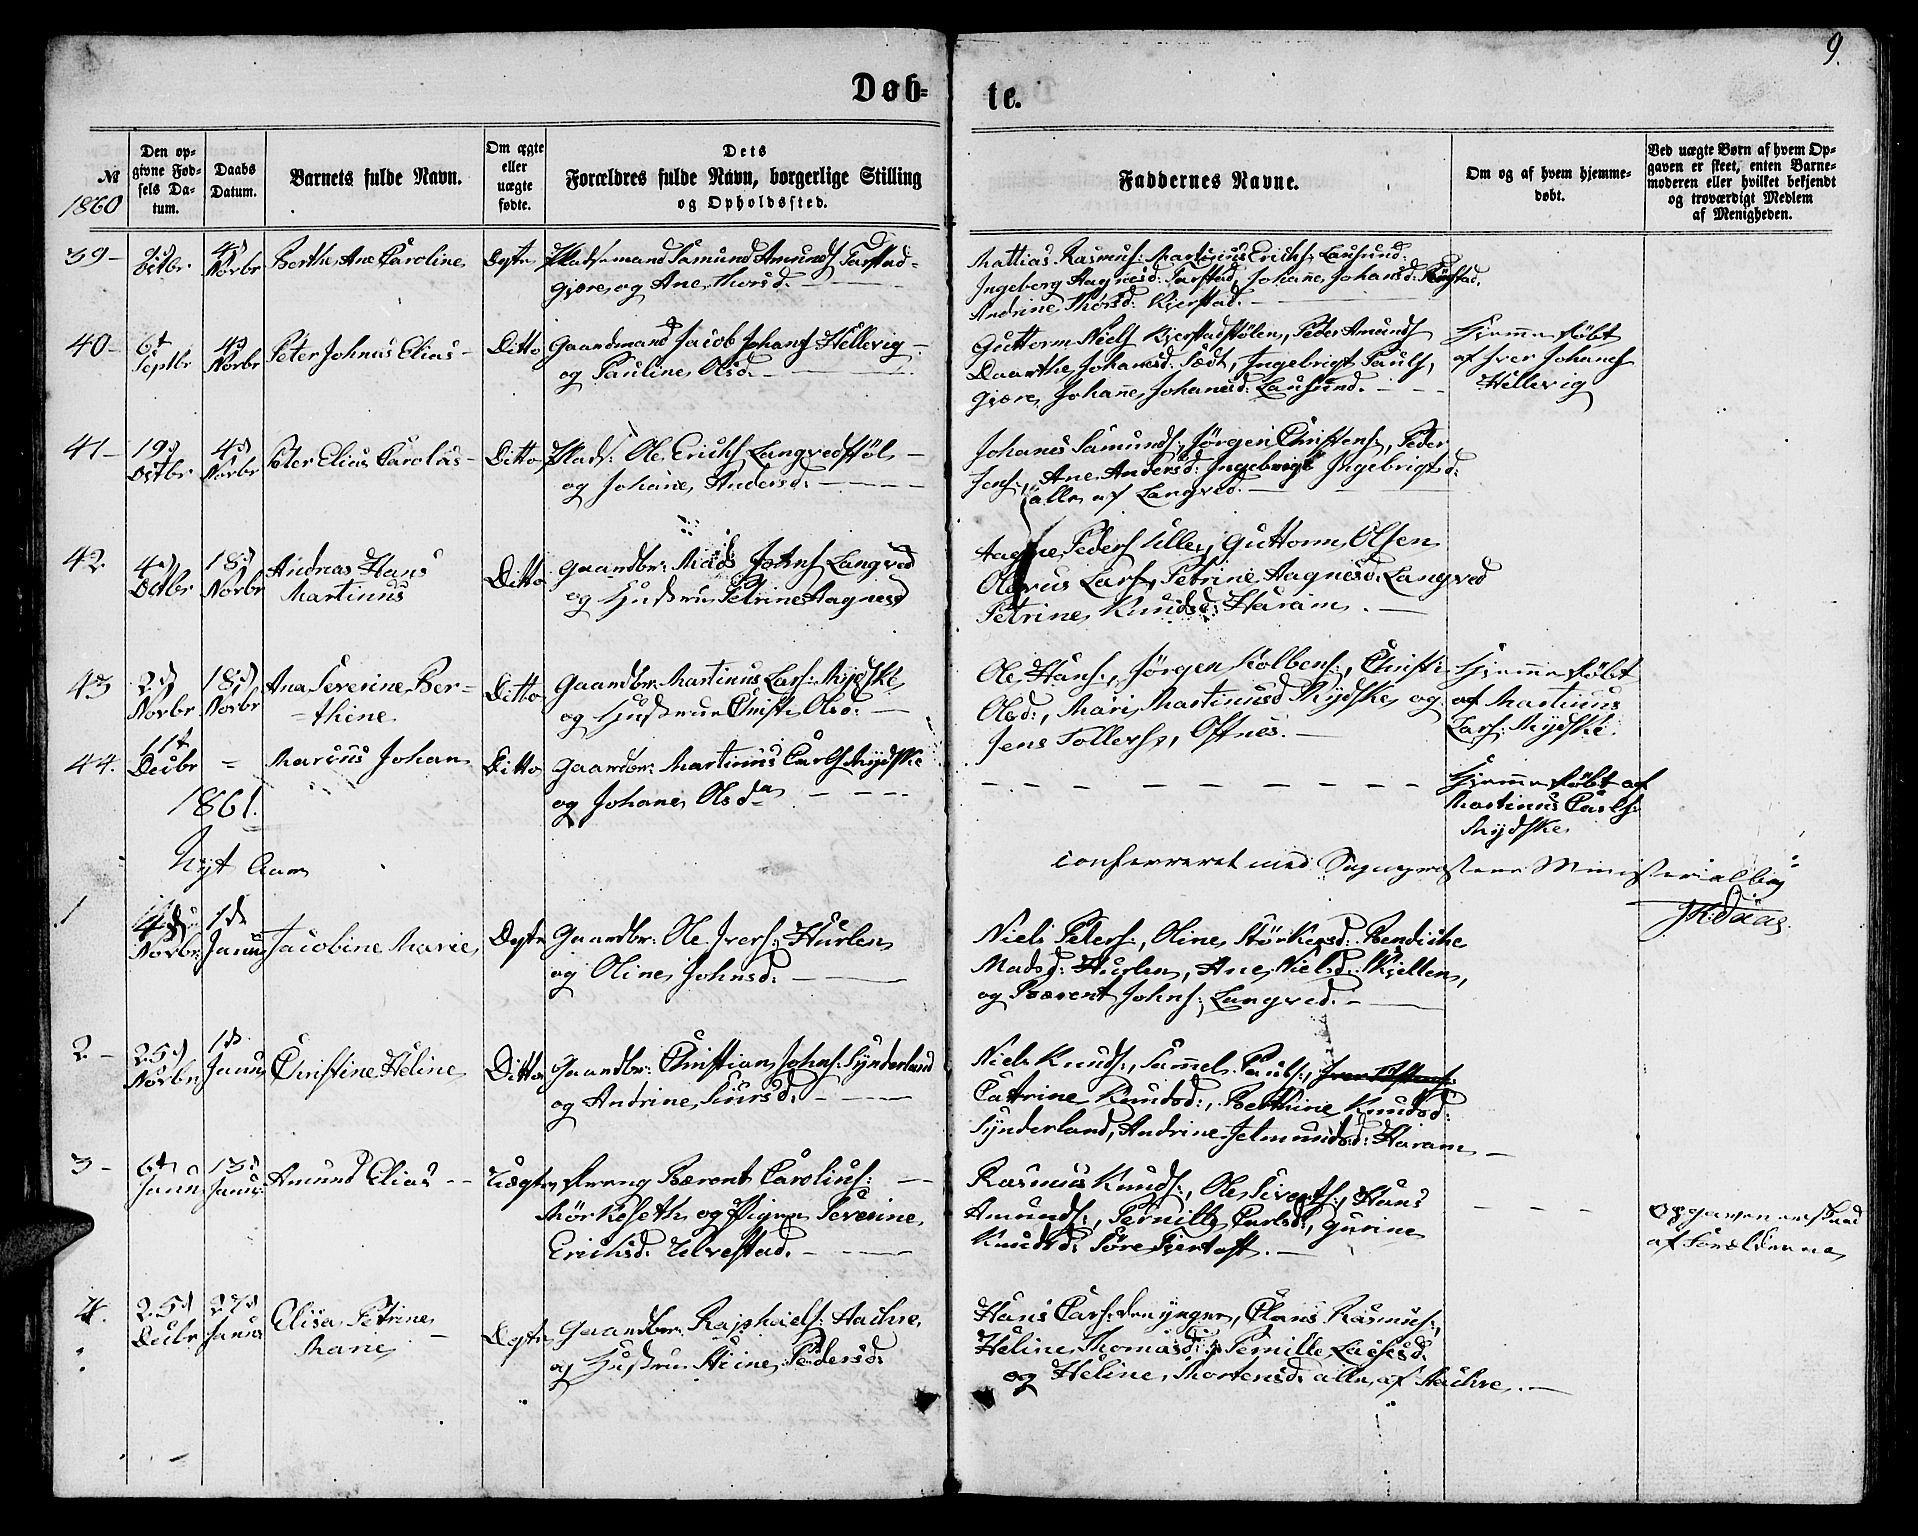 9.
Døb-
te.
№
1860
Den op-
givne Fød-
sels Da-
tum.
Daabs
Datum.
Barnets fulde Navn.
Om ægte
eller
uægte
fødte.
Dets
Forældres fulde Navn, borgerlige Stilling
og Opholdssted.
Faddernes Navne.
Om og af hvem hjemme-
døbt.
Ved uægte Børn af hvem Op-
gaven er skeet, enten Barne-
moderen eller hvilket bekjendt
og troværdigt Medlem
af Menigheden.
39- Octbr 4d Novbr Berthe Ane Caroline Ægte Pladsemand Samund Amunds
og Ane Thorsd.
Mattias Rasmus: Martinus Erichs: Lausund:
Ingeborg Johane Johansd:
Andrine Thorsd: Kjerstad.
40- 6t Septbr 4d Novbr Peter Johnas Elias- Ditto Gaardmand Jacob Johans Hellevig
og Pauline Olsd.
Guttorm Niels Kjerstadstølen, Peder Amunds
Daarthe Johansd: Ingebrigt Pauls,
Gjære, Johane Johanesd: Lausund.
Hjemmedøbt
af Iver Johans
Hellevig
41- 19d Octbr 4d Novbr Peter Elias Carolus- Ditto Plads: Ole Erichs Langvedstøl
og Johane Andersd.
Johanes Samunds:, Jørgen Christens:, Peder
Jens:, Ane Andersd: Ingebrigt Ingebrigtsd:
alle af Langved.
42. 4d Octbr 18d Novbr Andreas Hans
Martinus
Ditto Gaardbr: Mads Johns Langved
og Hustrue Petrine Aagnesd
Aagne Peders Ulle, Guttorm Olsen
Olavus Lars, Petrine Aagnesd: Langved
Petrine Knudsd: Haram.
43 2d Novbr 18d Novbr Ana Severine Ber-
thine
Ditto Gaardbr: Martinus Lars: Mydske
og Hustrue Christi Olsd:
Ole Hans:, Jørgen Kolbens:, Christi
Olsd:, Mari Martinusd Mydske og
Jens Tollefs:, Oftnes.
Hjemmedøbt
af Martinus
Lars: Mydske.
44. 11t Decbr - Marius Johan Ditto Gaardbr: Martinus Carls Mydske
og Johane Olsda
Hjemmedøbt af
Martinus Carls:
Mydske
1861.
Nyt Aar
conferreret med Sognepræstens Ministerialbog
JK. Daae.
1 Novbr 1ste Janu Jacobine Marie Ægte Gaardbr: Ole Ivers: Hurlen
og Oline Johnsd:
Niels Peters:, Oline Størkersd: Bendiche
Madsd: Hurlen, Ane Nielsd: Kjellen,
og Bærent Johns: Langved.
2- 25d Novbr 1ste Janu Christine Heline Ditto Gaardbr: Christian Johns: Synderland
og Andrine Siursd.
Niels Knuds:, Sammel Pauls:,
Catrine Knudsd:, Berthine Knudsd:
Synderland, Andrine Jetmundsd: Haram
3- 6te Janu 13d Janu Amund Elias Uægte Dreng Bærent Carolius:
Mørkeseth og Pigen Severine
Erichsd: Ulvestad.
Rasmus Knuds:, Ole Siverts:, Hans
Amunds:, Pernille Carlsd:, Gurine
Knudsd: Søre Fjertoft.
Opgaven er skeed
af Forældrene
4. 25d Decbr 27d Janu Elisa Petrine
Marie
Ægte Gaardbr: Raphaels: Hachre
og Hustrue Stine Pedersd:
Hans Lars: den yngre, Claus Rasmus:,
Heline Thomasd: Pernille
og Heline Mortensd: alle af Hachre.